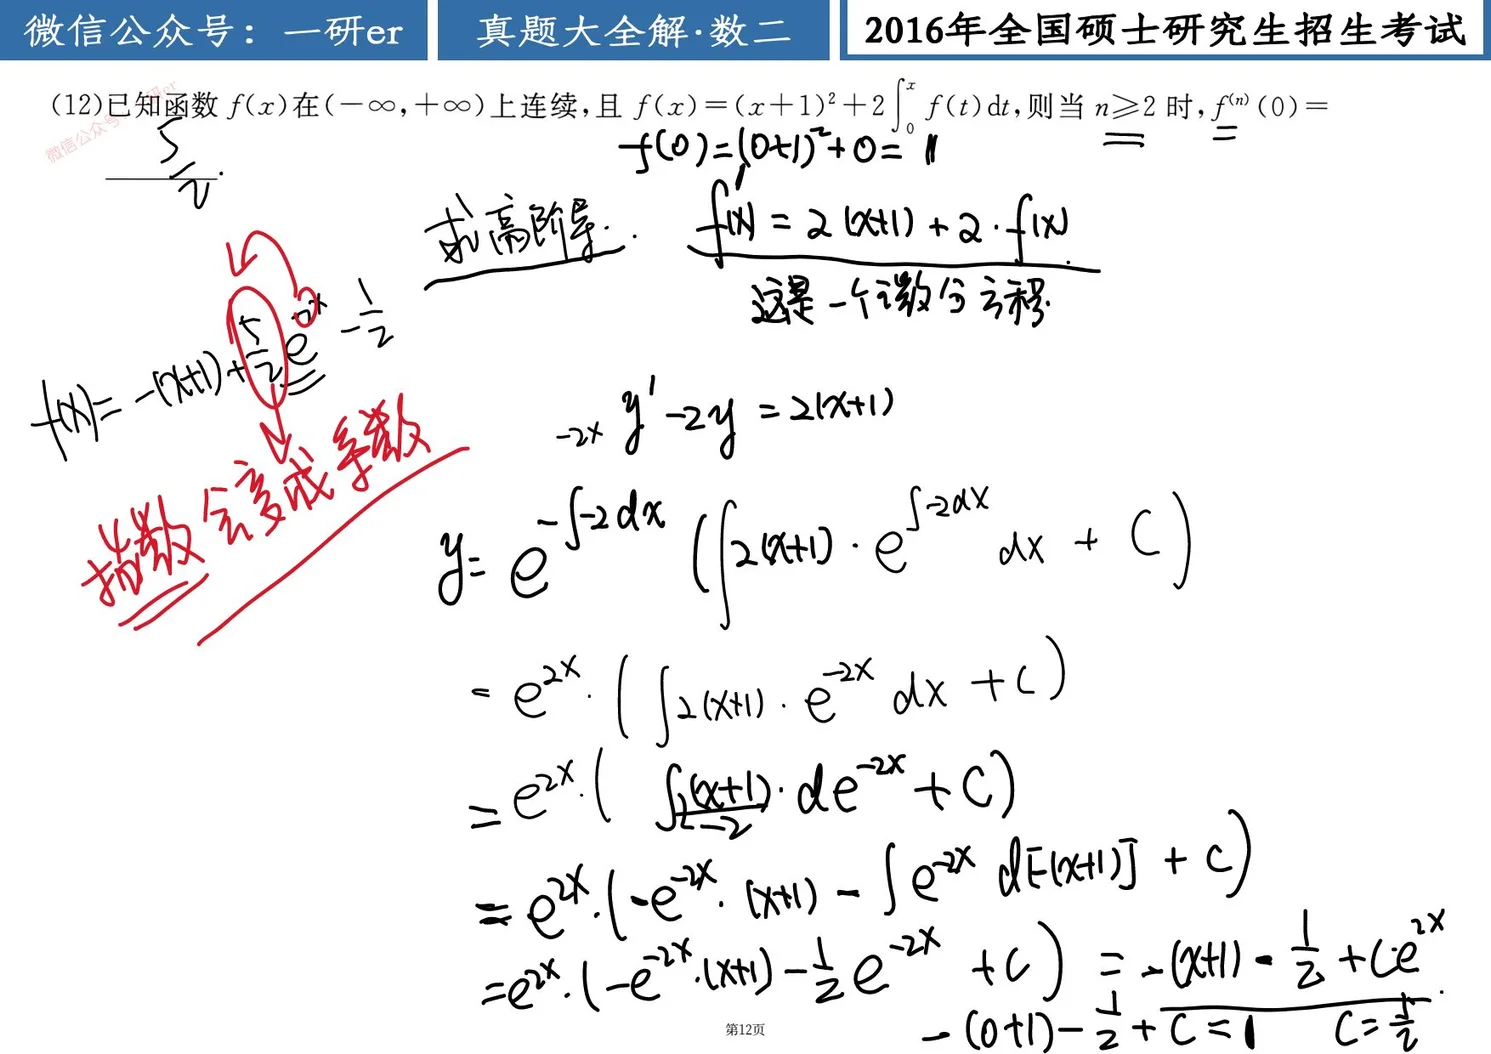 微信公众号：一研er
真题大全解·数二
2016年全国硕士研究生招生考试
(12)已知函数 f(x)在(－∞,＋∞)上连续,且 f(x)=(x+1)²+2∫₀ˣ f(t)dt,则当 n≥2 时,f⁽ⁿ⁾(0)=
5/2
f(0)=(0+1)²+0=1
求高阶导.
f'(x)=2(x+1)+2·f(x)
这是一个微分方程
f(x)=-(x+1)+5/2 e^2x -1/2
指数会变成系数
-2x
y'-2y=2(x+1)
y=e^-∫-2dx (∫2(x+1)·e^∫-2dx dx+C)
=e^2x·(∫2(x+1)·e^-2x dx+C)
=e^2x·(∫2(x+1)/-2·de^-2x+C)
=e^2x·(-e^-2x·(x+1)-∫e^-2x d[-(x+1)]+C)
=e^2x·(-e^-2x·(x+1)-1/2 e^-2x+C)=-(x+1)-1/2+Ce^2x
-(0+1)-1/2+C=1
第12页